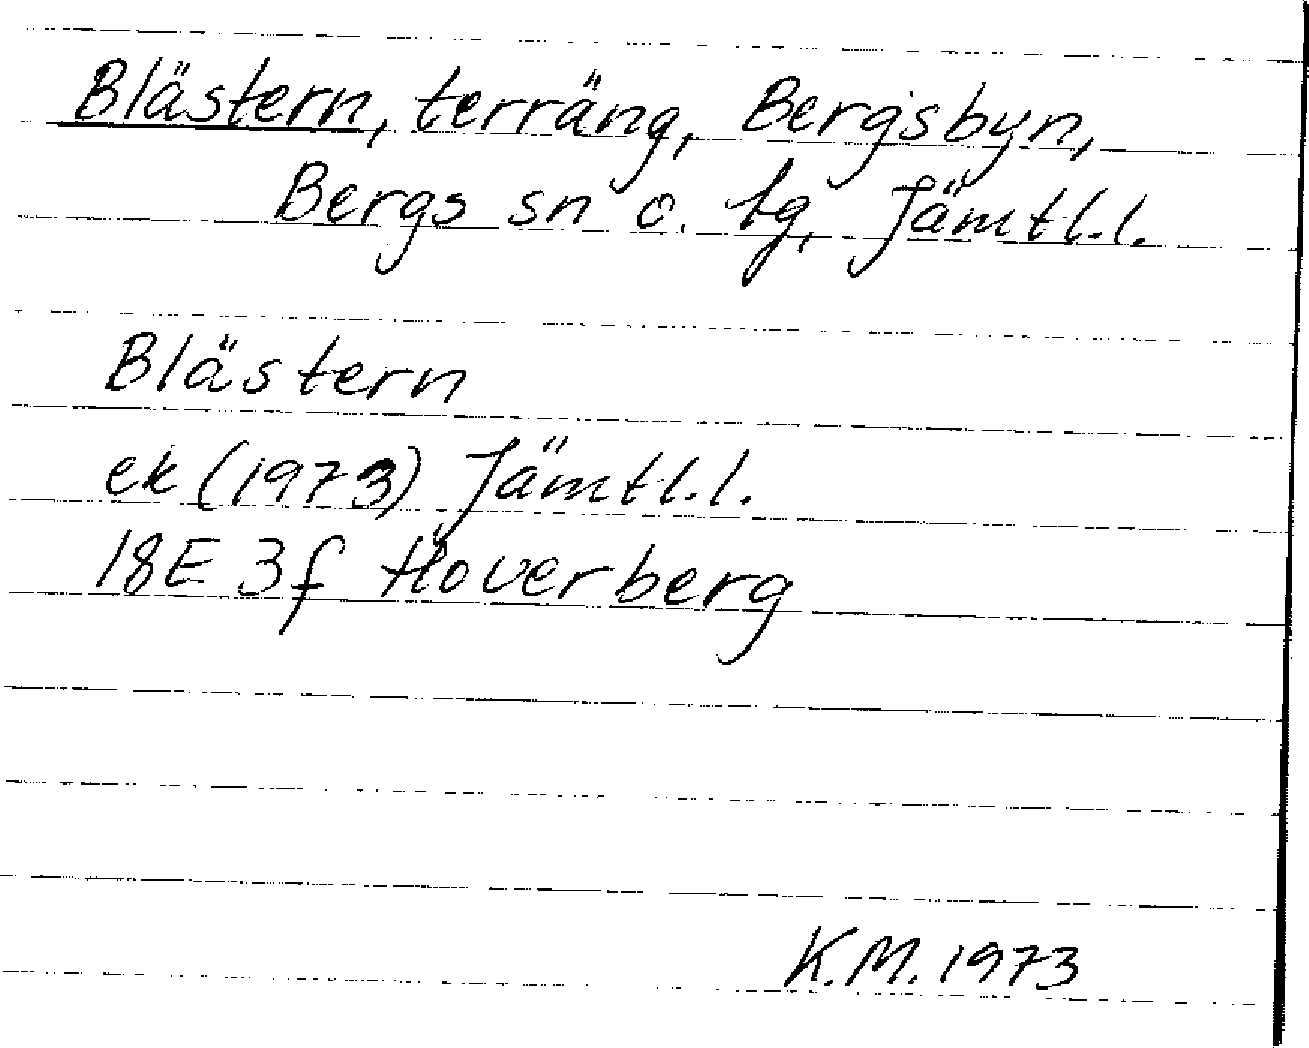 Blästern, terräng, Bergsbyn,
Bergs sn o. tg, Jämtl.l.
Blästern
ek (1973) Jämtl.l.
18E 3f Hoverberg
K.M. 1973